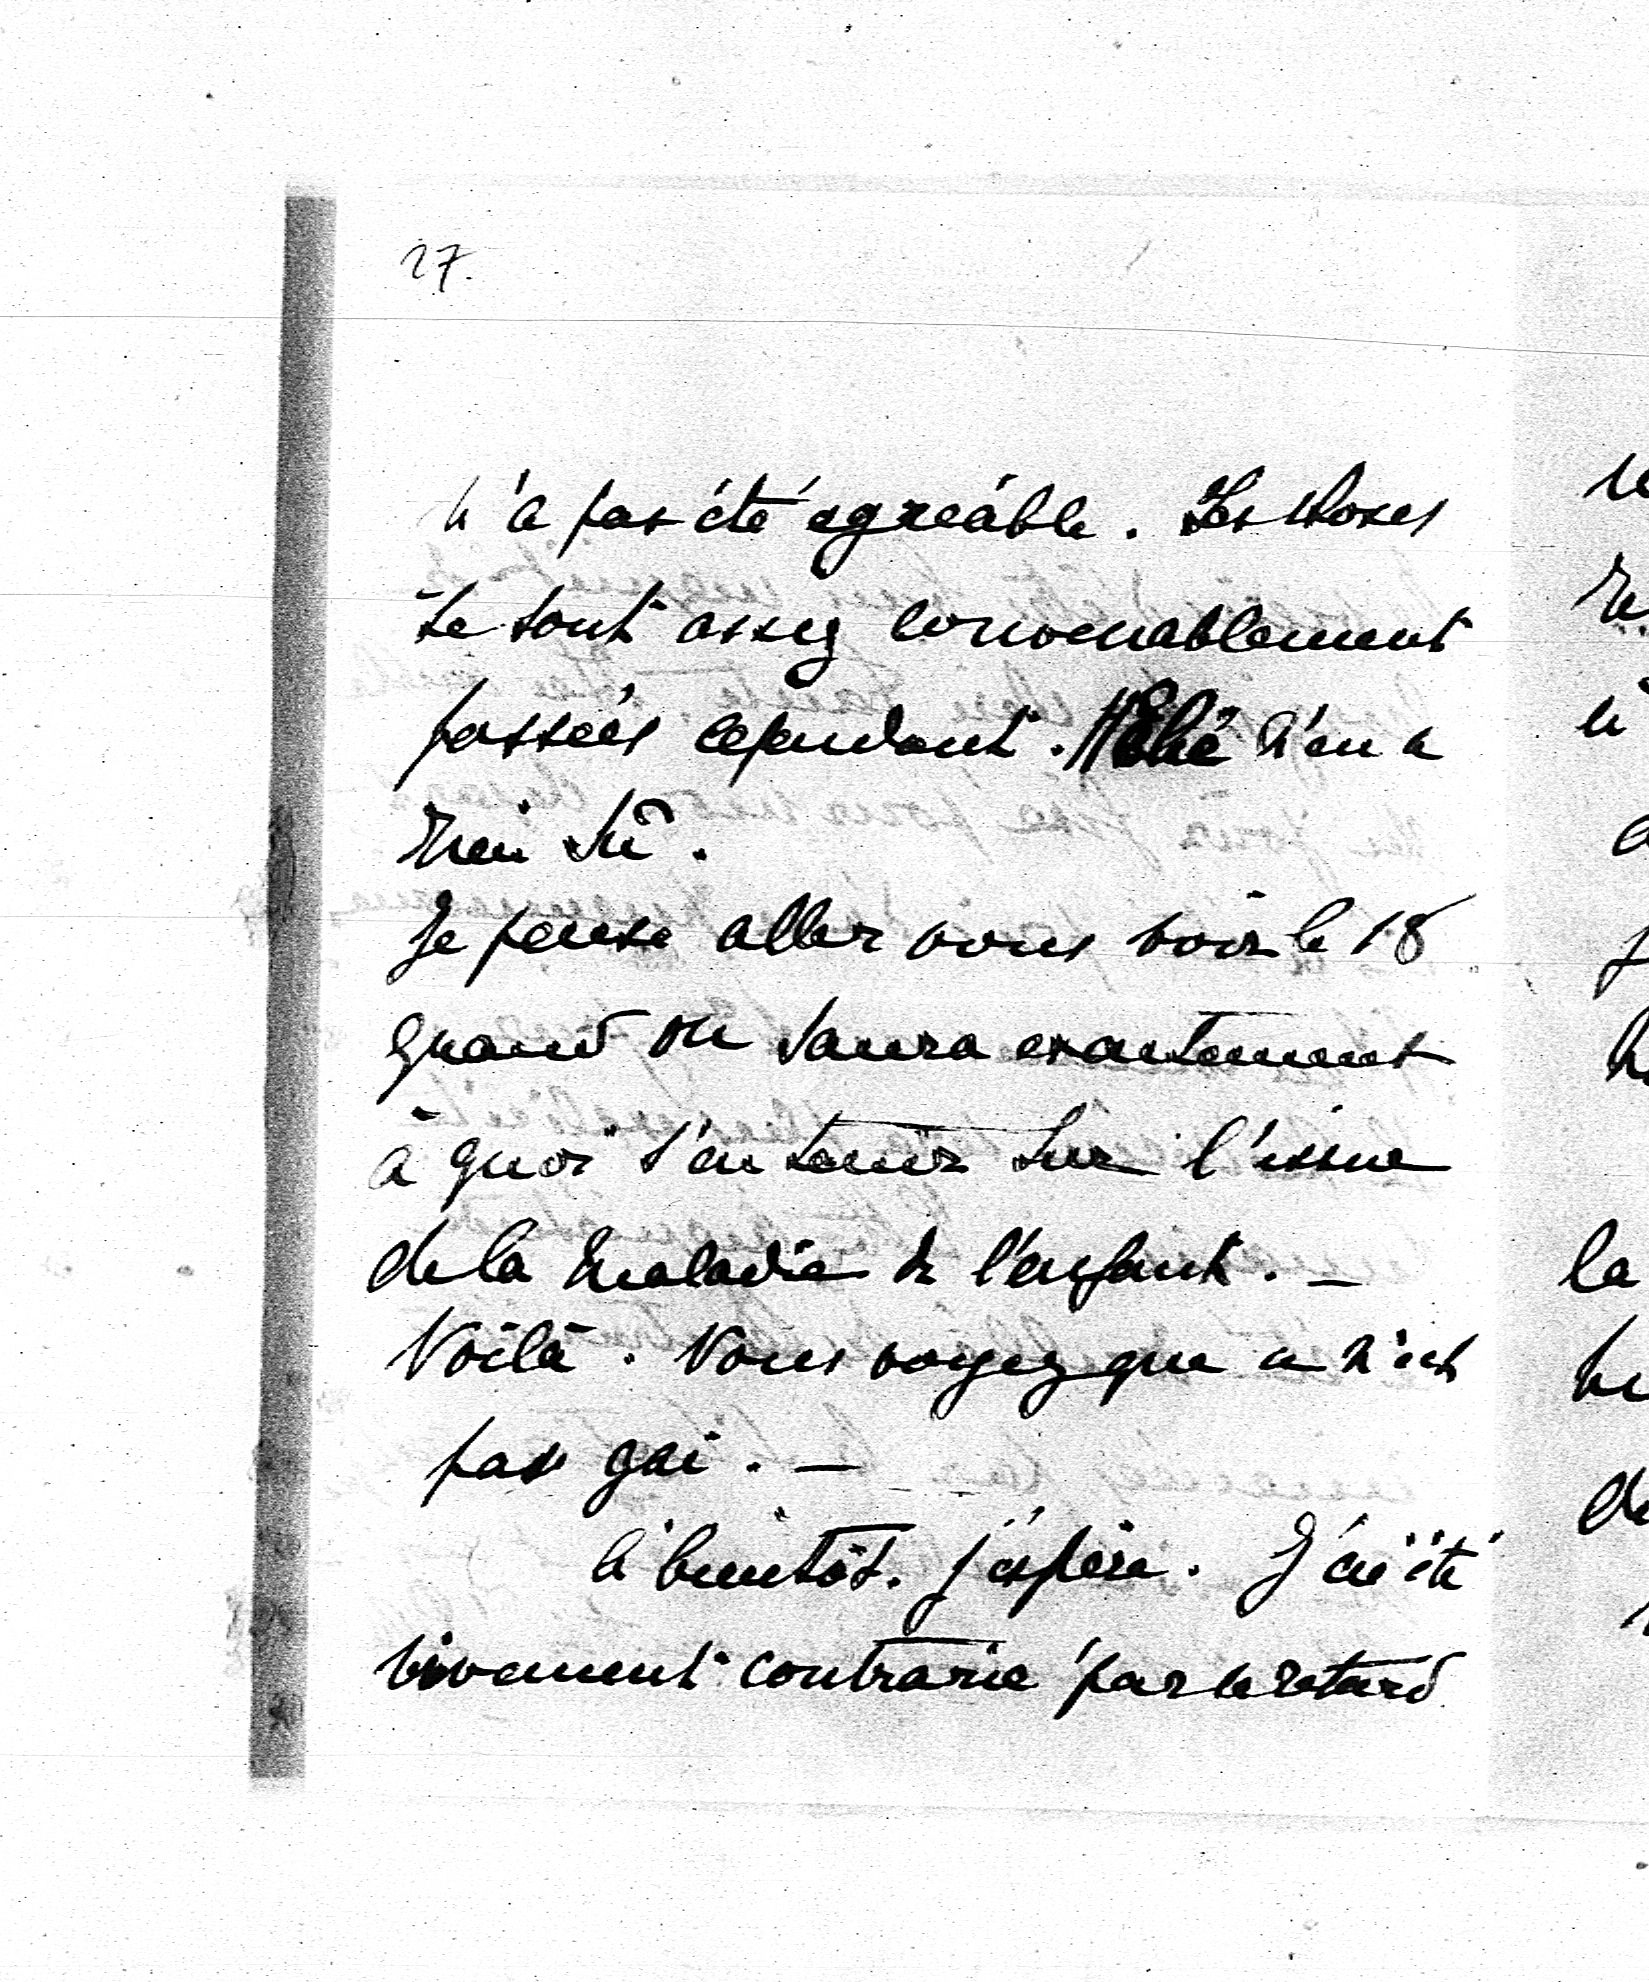 27.
n'a pas été agréable. Les choses
se sont assez convenablement
passées cependant. n'en a
rien su.
Je pense aller vous voir le 18
quand on saura exactement
à quoi s'en tenir sur l'issue
de la maladie de l'enfant. —
Voilà. Vous voyez que ce n'est
pas gai. —
A bientôt. j'espère. J'ai été
vivement contrarié par le retard